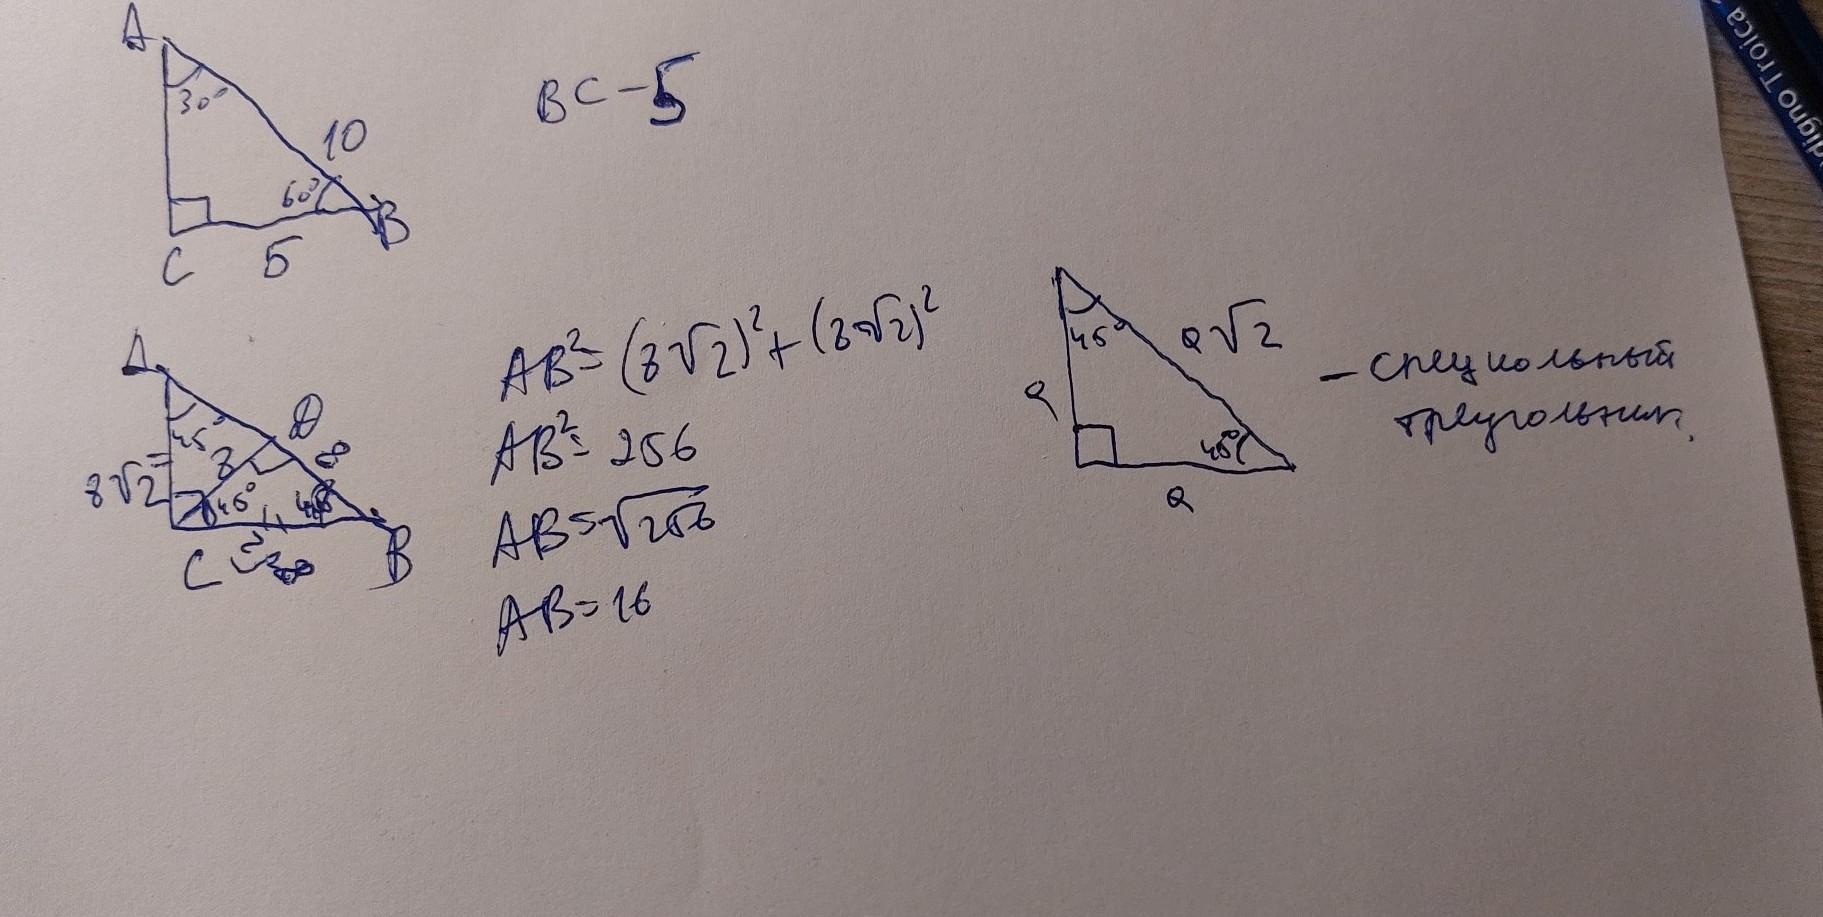 A
30°
10
60°
B
C
5
BC - 5
A
45°
D
8
8
8√2
45°
45°
C
B
AB² = (8√2)² + (8√2)²
AB² = 256
AB = √256
AB = 16
45°
a√2
a
45°
a
- специальный
треугольник.
digno Troica